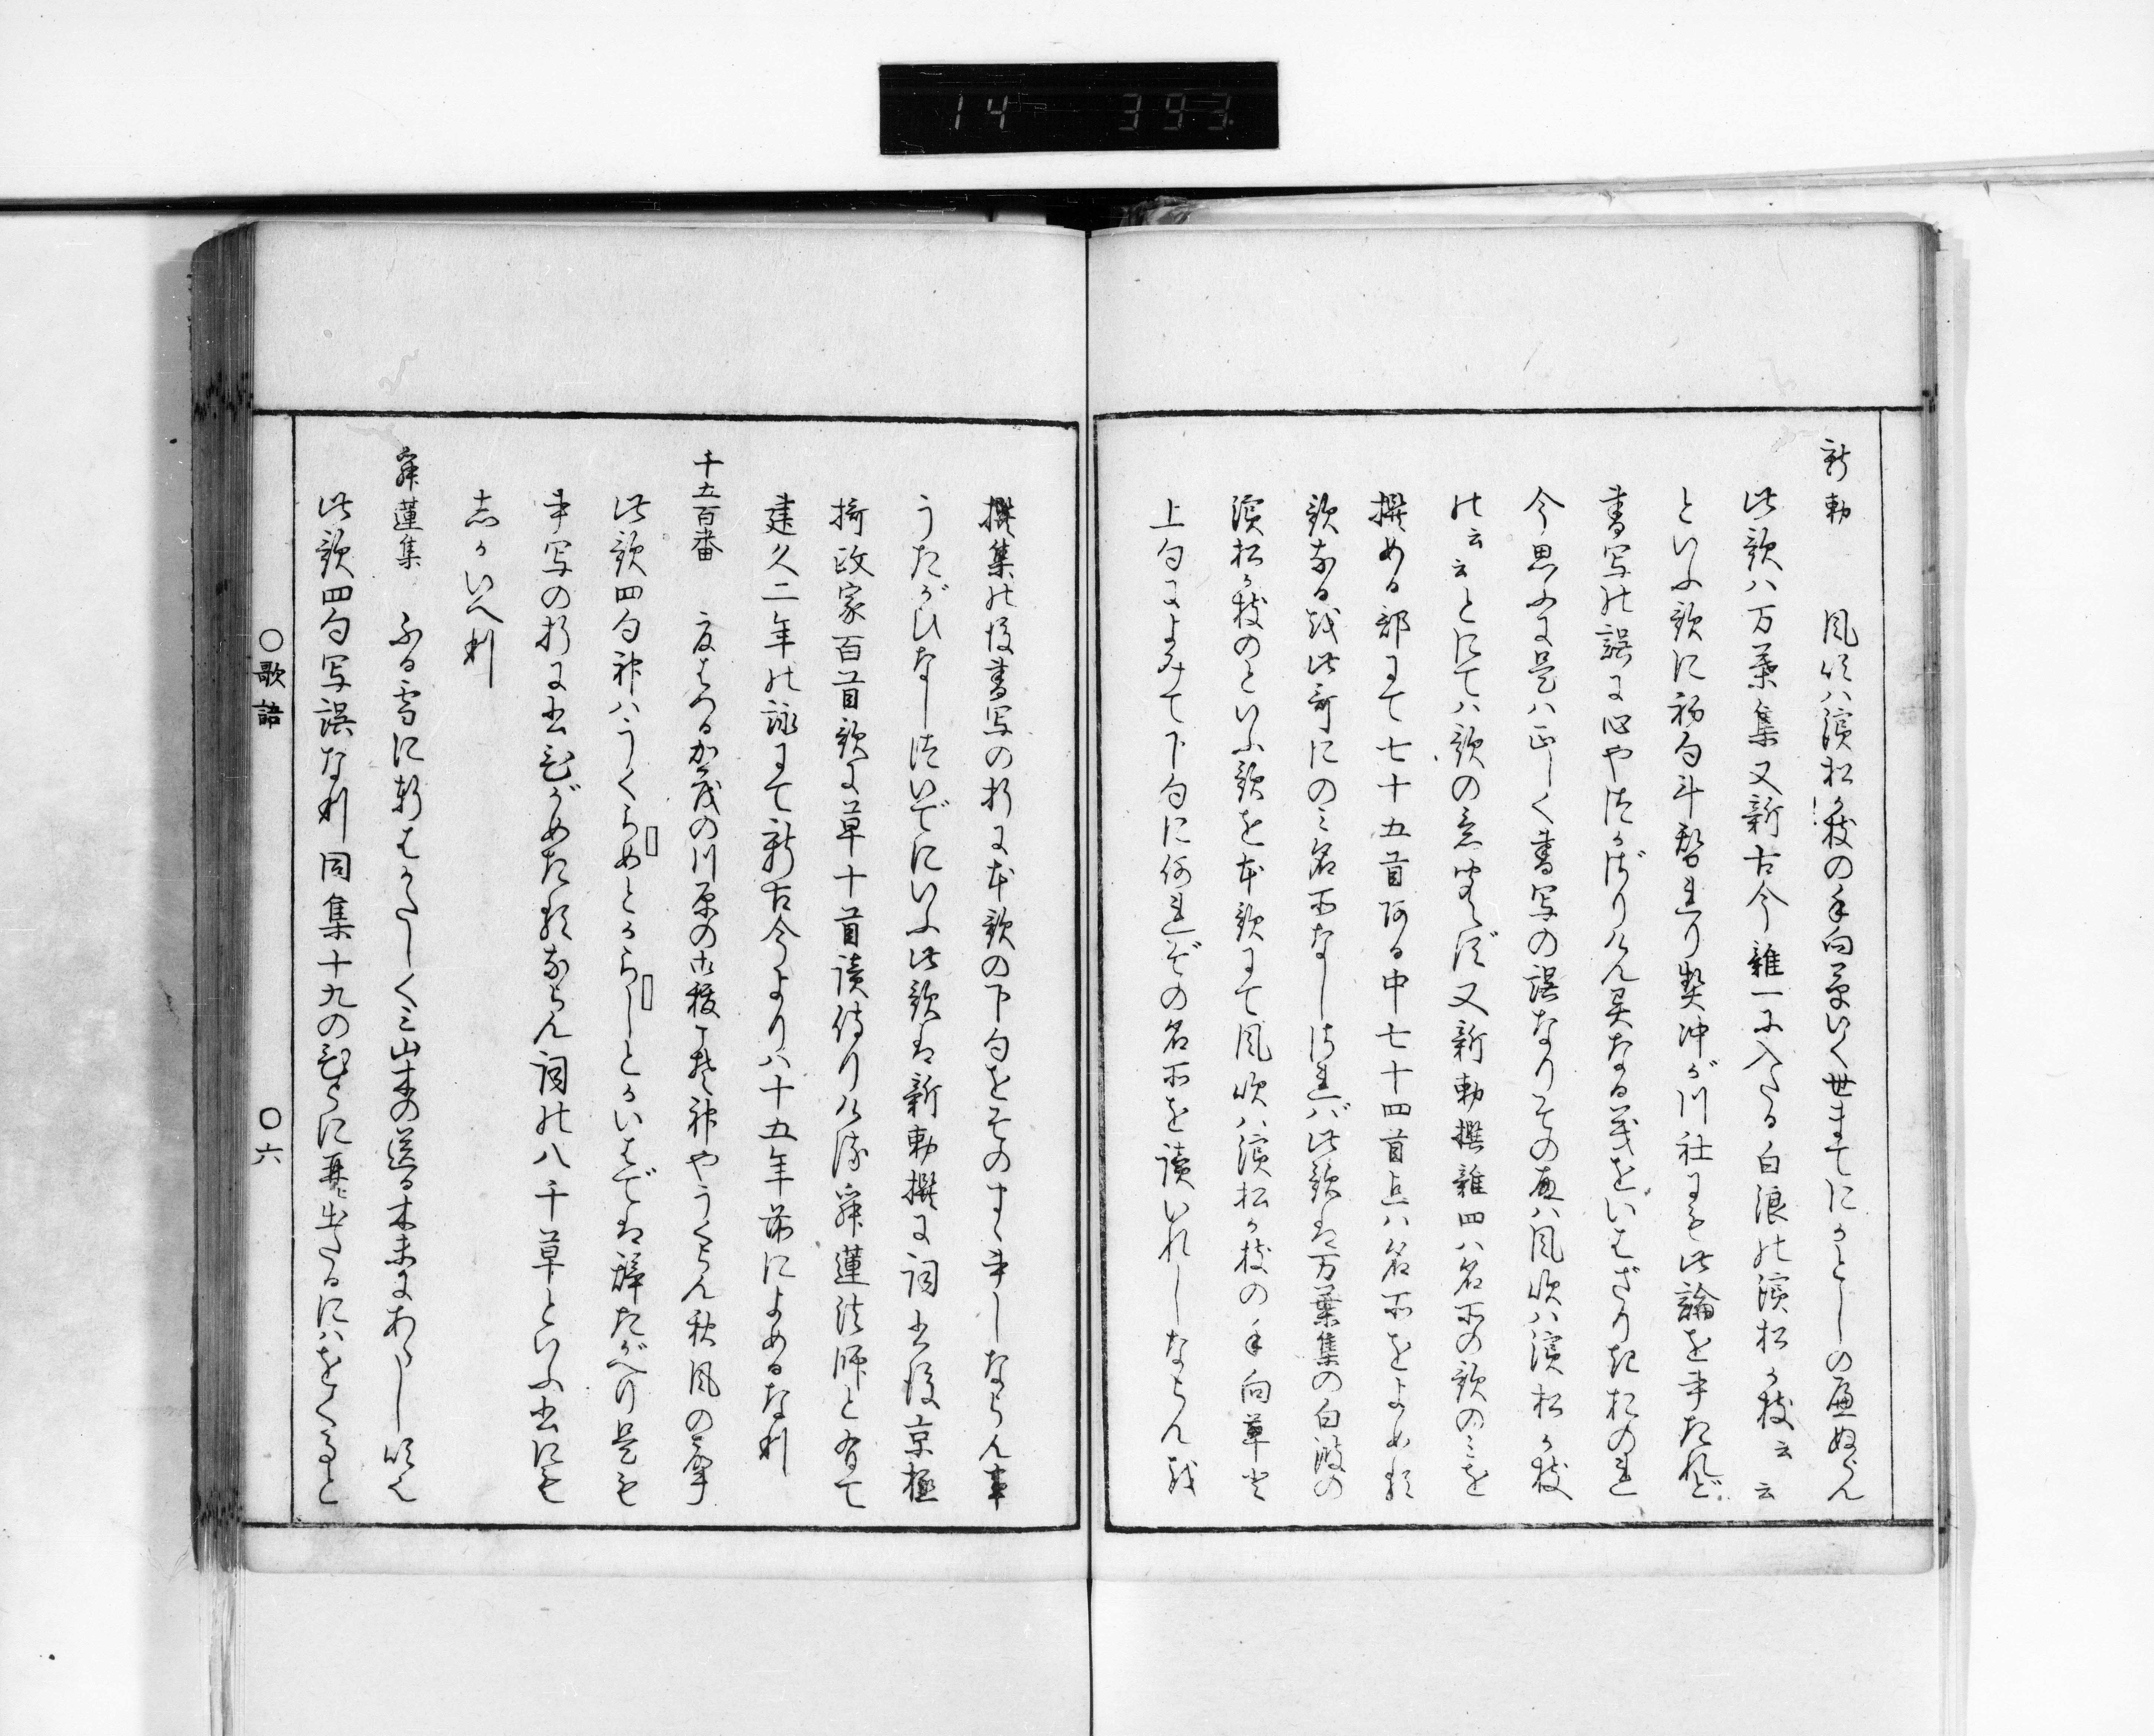 14 393
新勅 風吹ハ濱松か枝の手向草いく世まてにかとしの歴ぬらん
此歌ハ万葉集又新古今雜一に入たる白浪の濱松か枝云云
といふ歌に初句斗替れり契沖が川社にも此論を書たれど
書写の誤に心やつかざりけん異なる義をいはざりきおのれ
今思ふに是ハ正しく書写の誤なりその故ハ風吹ハ濱松か枝
の云云とにてハ歌の意聞えず又新勅撰雜四ハ名所の歌のミを
撰める部にて七十五首ある中七十四首迄ハ名所をよめる
歌なるを此哥にのミ名所なしされバ此歌は万葉集の白波の
濱松か枝のといふ歌を本歌にて風吹ハ濱松か枝の手向草と
上句によみて下句に何れぞの名所を讀いれしならんを
撰集の後書写の折に本歌の下句をそのまゝ書しならん事
うたがひなしついでにいふ此歌は新勅撰に詞書後京極
摂政家百首歌に草十首讀侍りける寂蓮法師と有て
建久二年の詠にて新古今よりハ十五年前によめるなり
千五百番 夏はつる加茂の川原の御祓 神やうくらん秋風の聲
此歌四句神ハうくらめとからしとかいはでは辞たがへり是も
書写の折に書ひがめたるならん詞の八千草といふ書にも
志かいへり
寂蓮集 ふる雪に軒はかたしくミ山木の送る木末にあらし吹也
此歌四句写誤なり同集十九のひらに再出たるにハをくると
〇歌語 〇六